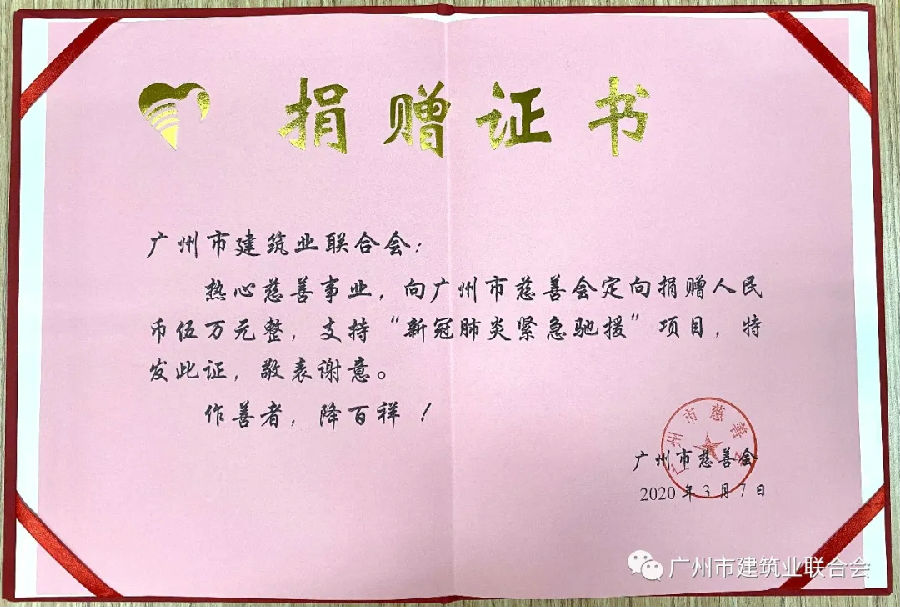 捐赠证书
广州市建筑业联合会：
热心慈善事业，向广州市慈善会定向捐赠人民
币伍万元整，支持“新冠肺炎紧急驰援”项目，特
发此证，敬表谢意。
作善者，降百祥！
广州市慈善会
广州市慈善会
2020年3月7日
广州市建筑业联合会